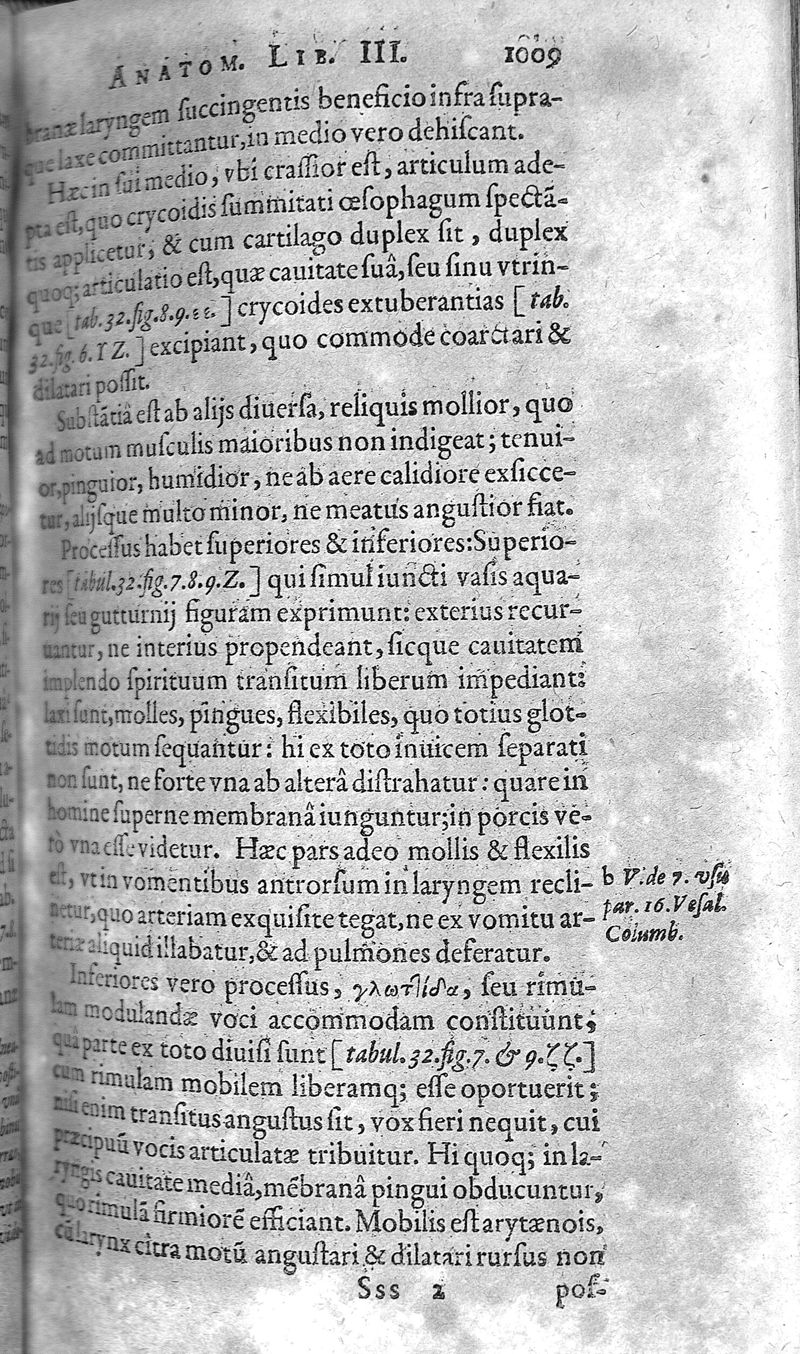 ANATOM. LIB. III. 1009
branæ laryngem ſuccingentis beneficio infra ſupra-
que laxe committantur, in medio vero dehiſcant.
Hæc in ſui medio, vbi craſſior eſt, articulum ade-
pta eſt, quo crycoidis ſummitati œſophagum ſpectã-
tis applicetur; & cum cartilago duplex ſit, duplex
quoq; articulatio eſt, quæ cauitate ſuâ, ſeu ſinu vtrin-
que [tab. 32. fig. 8. 9. εε.] crycoides extuberantias [tab.
32. fig. 6. Γ Z.] excipiant, quo commode coarctari &
dilatari poſſit.
Subſtãtiâ eſt ab alijs diuerſa, reliquis mollior, quo
ad motum muſculis maioribus non indigeat; tenui-
or, pinguior, humidior, ne ab aere calidiore exſicce-
tur, alijſque multo minor, ne meatus anguſtior fiat.
Proceſſus habet ſuperiores & inferiores: Superio-
res [tabul. 32. fig. 7. 8. 9. Z.] qui ſimul iuncti vaſis aqua-
rij ſeu gutturnij figuram exprimunt: exterius recur-
uantur, ne interius propendeant, ſicque cauitatem
implendo ſpirituum tranſitum liberum impediant:
laxi ſunt, molles, pingues, flexibiles, quo totius glot-
tidis motum ſequantur: hi ex toto inuicem ſeparati
non ſunt, ne forte vna ab alterâ diſtrahatur: quare in
homine ſuperne membranâ iunguntur; in porcis ve-
rò vna eſſe videtur. Hæc pars adeo mollis & flexilis
eſt, vt in vomentibus antrorſum in laryngem recli-
netur, quo arteriam exquiſite tegat, ne ex vomitu ar-
teriæ aliquid illabatur, & ad pulmones deferatur.
b V. de 7. vſu
par. 16. Veſal.
Columb.
Inferiores vero proceſſus, γλωτίδα, ſeu rimu-
lam modulandæ voci accommodam conſtituunt;
quâ parte ex toto diuiſi ſunt [tabul. 32. fig. 7. & 9. ζζ.]
cum rimulam mobilem liberamq; eſſe oportuerit;
niſi enim tranſitus anguſtus ſit, vox fieri nequit, cui
præcipuũ vocis articulatæ tribuitur. Hi quoq; in la-
ryngis cauitate mediâ, mẽbranâ pingui obducuntur,
quo rimulã firmiorẽ efficiant. Mobilis eſt arytænois,
cũ larynx citra motũ anguſtari & dilatari rurſus non
Sss 2 poſ-